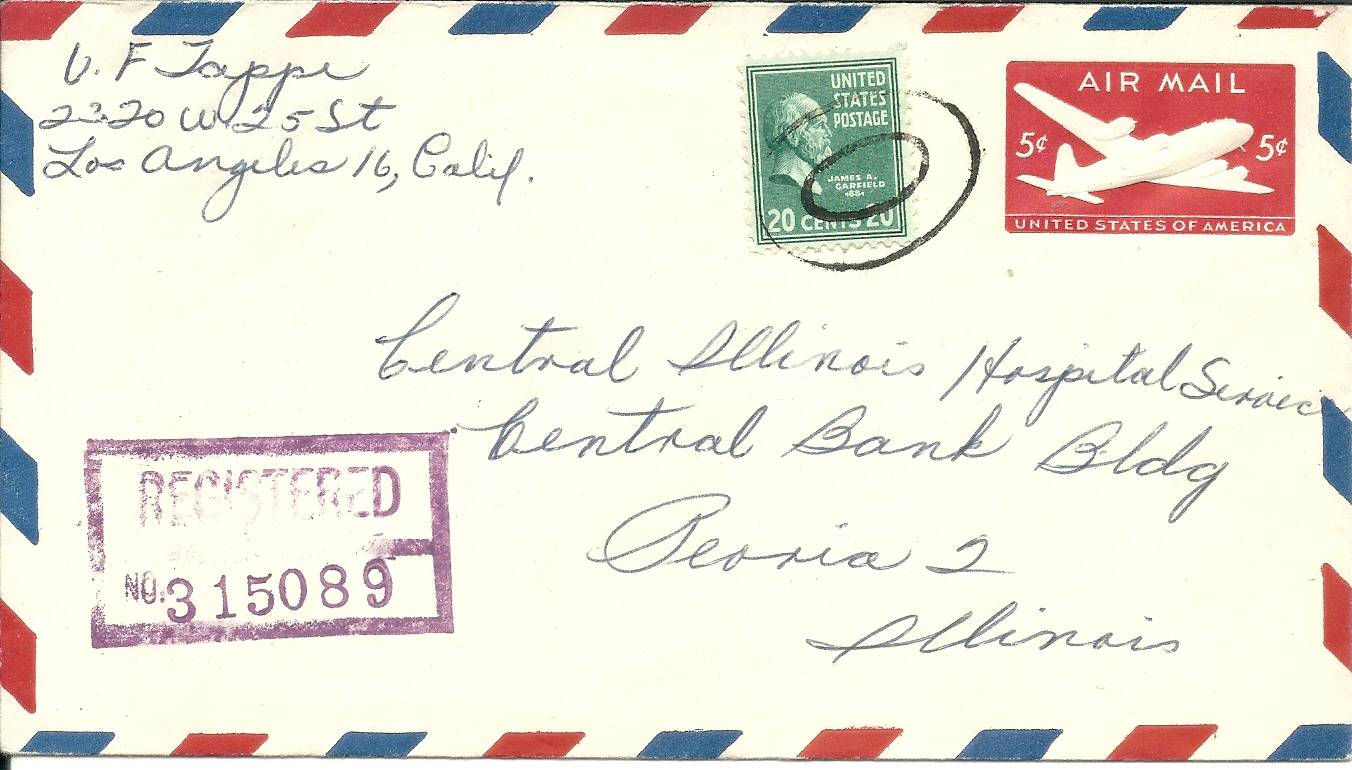 V. F Tappe
2320 W 25 St
Los Angeles 16, Calif.
UNITED
STATES
POSTAGE
JAMES A.
GARFIELD
1881
20 CENTS 20
AIR MAIL
5¢ 5¢
UNITED STATES OF AMERICA
Central Illinois Hospital Service
Central Bank Bldg
Peoria 2
Illinois
REGISTERED
NO. 315089